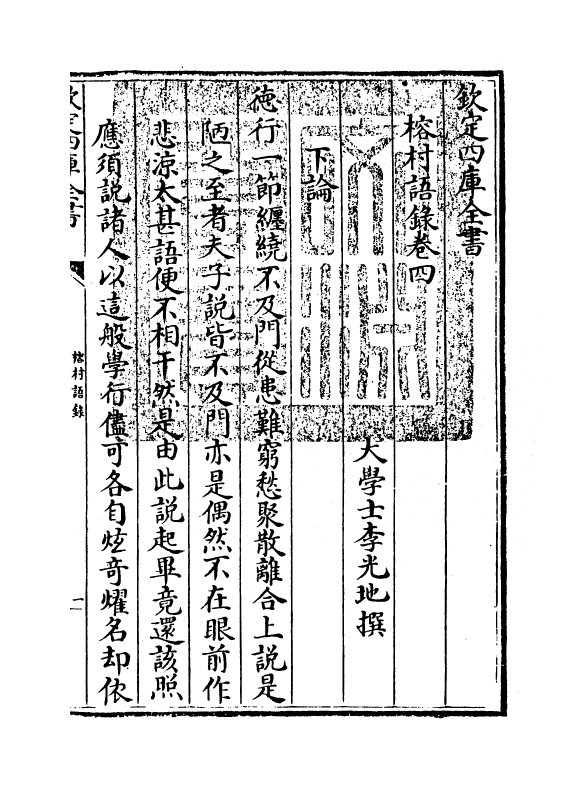 欽定四庫全書
榕村語録卷四
大學士李光地撰
下論
德行一節纏繞不及門從患難窮愁聚散離合上説是
陋之至者夫子説皆不及門亦是偶然不在眼前作
悲涼太甚語便不相干然是由此説起畢竟還該照
應須説諸人以這般學行儘可各自炫竒耀名却依
欽定四庫全書
榕村語録
一